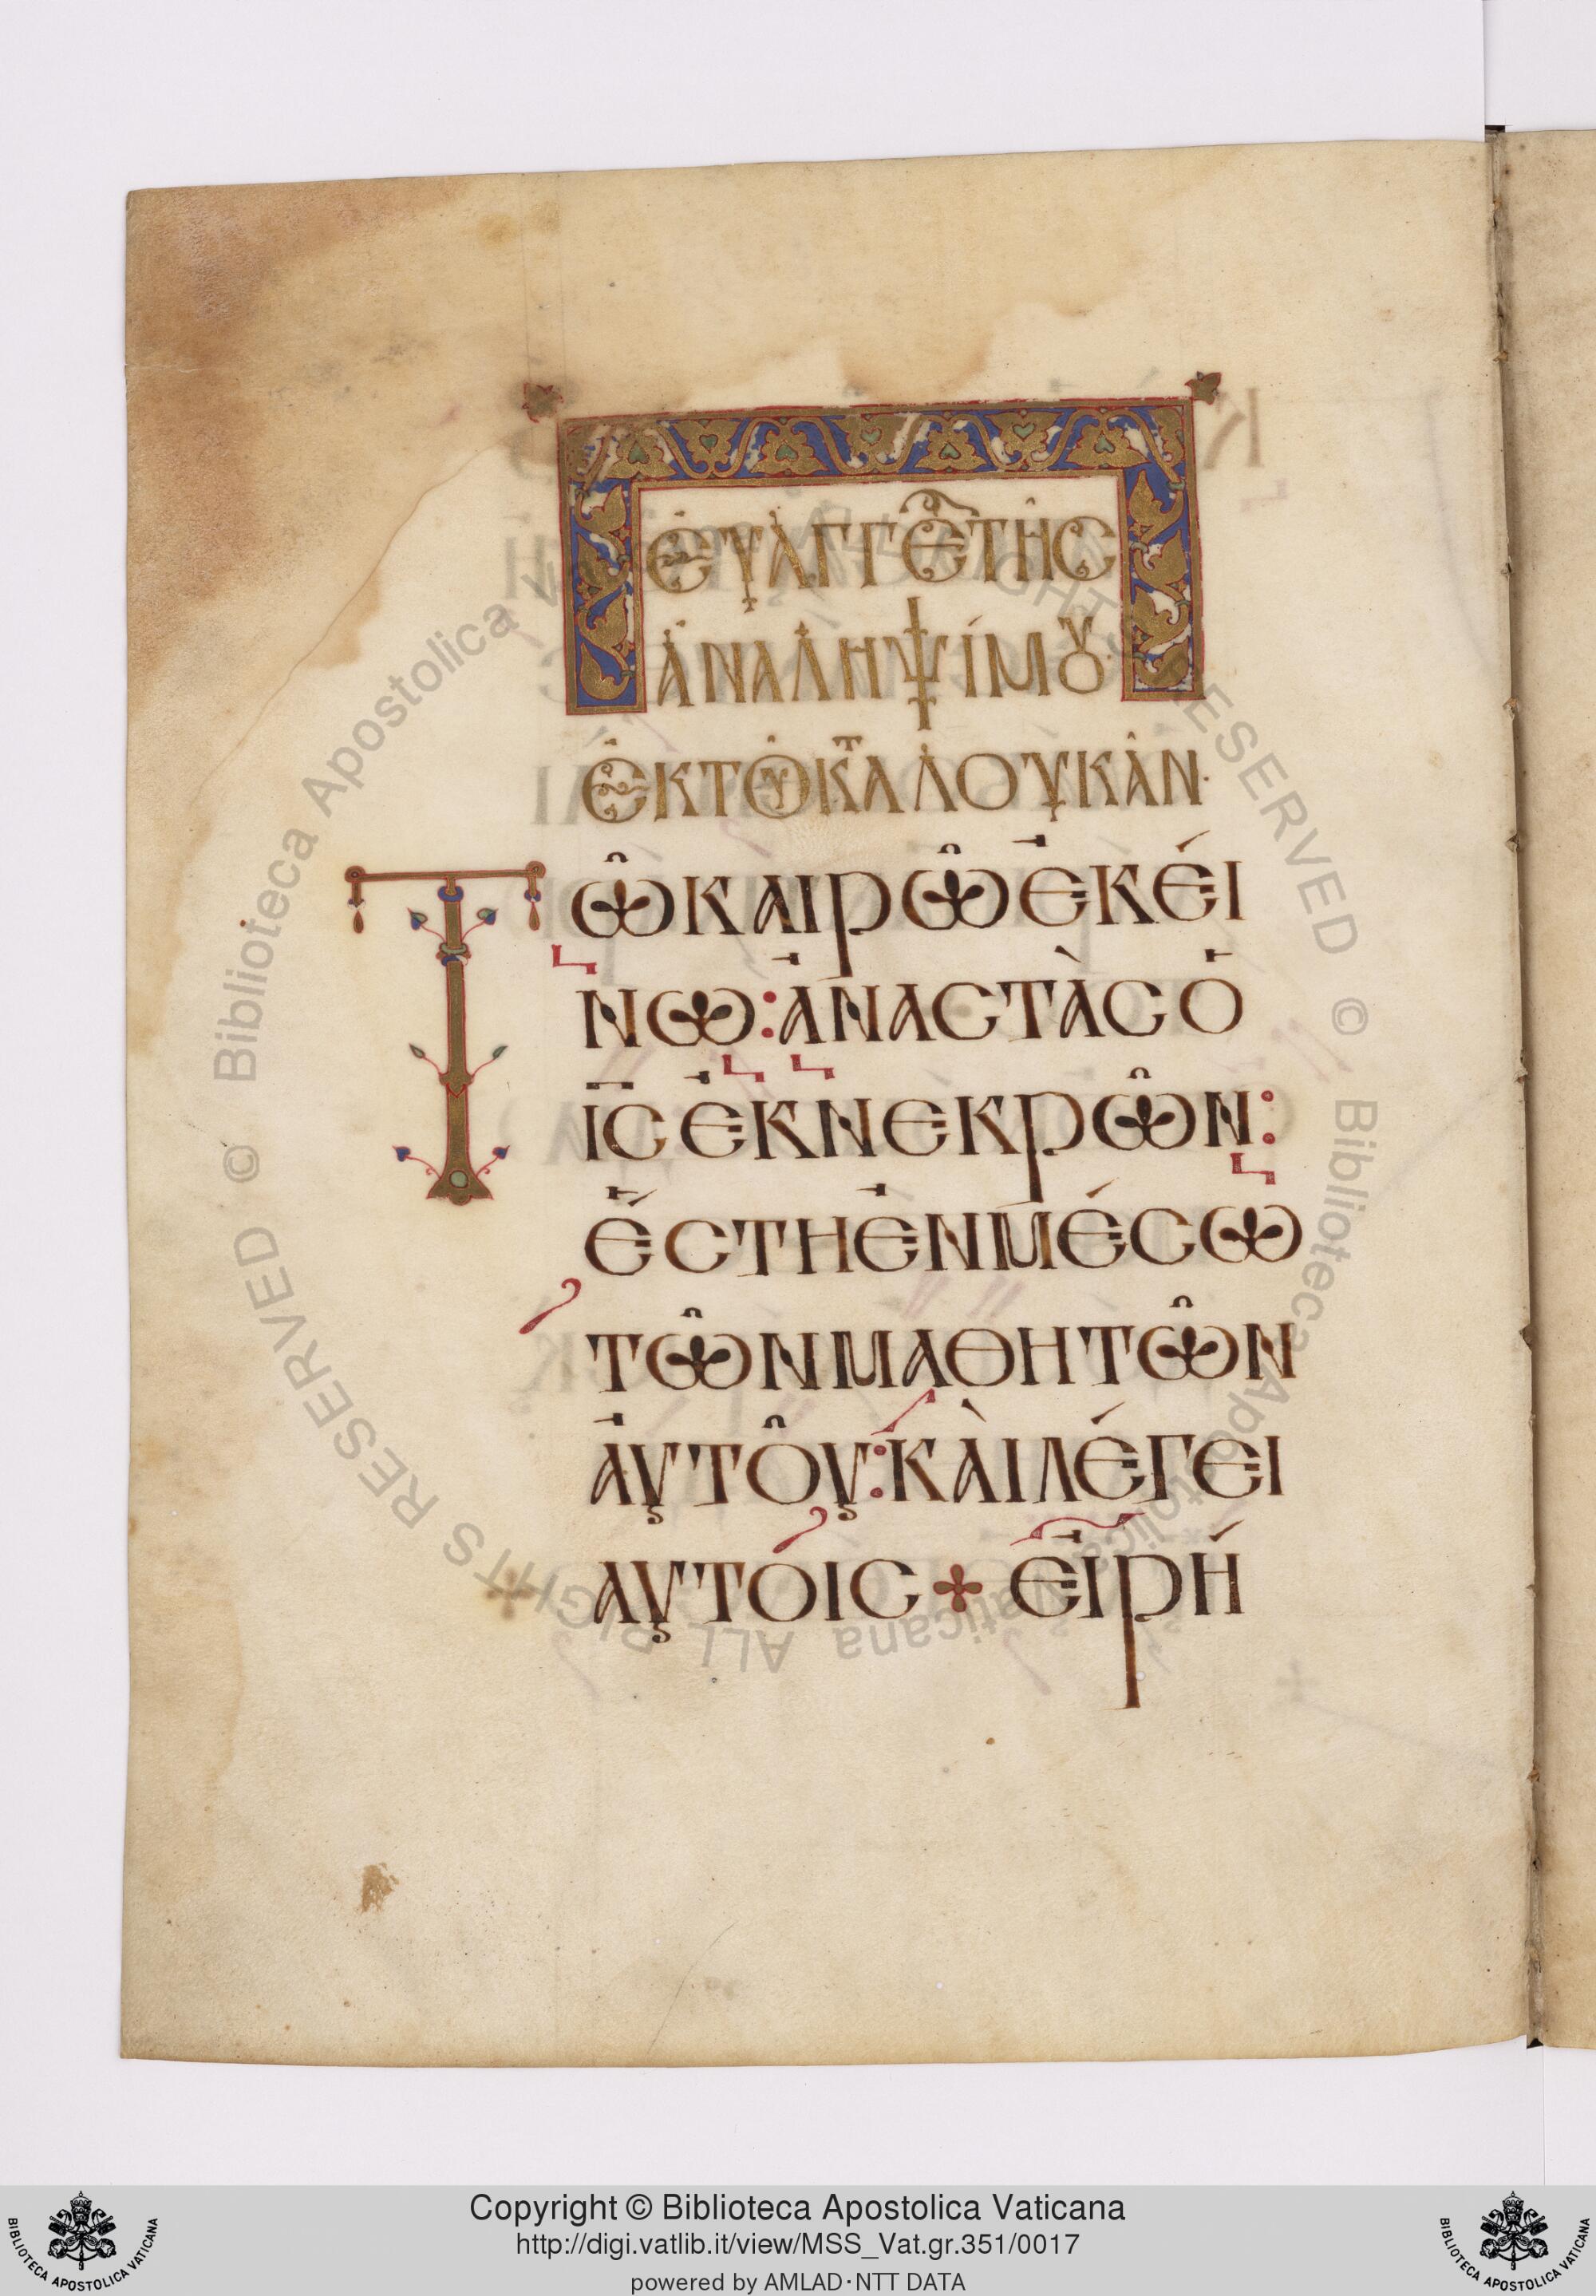 ἘΥΑΓΓΕ ΤΗ͂Σ
ἈΝΑΛΗΨΊΜΟΥ
ἘΚ ΤΟΥ͂ ΚΤΑ ΛΟΥΚΑ͂Ν·
ΤΩ͂ ΚΑΙΡΩ͂ ἘΚΈΙ
ΝΩ: ἈΝΑΣΤᾺΣ Ὁ
ΙΣ ἘΚ ΝΕΚΡΩ͂Ν:
ἝΣΤΗ ἘΝ ΜΈΣΩ
ΤΩ͂Ν ΜΑΘΗΤΩ͂Ν
ἈΥΤΟ͂Υ: ΚᾺΙ ΛΈΓΕΙ
ΑΥΤΌΙΣ + ἘΙΡΉ
© Biblioteca Apostolica Vaticana ALL RIGHTS RESERVED © Biblioteca Apostolica Vaticana ALL RIGHTS RESERVED
Copyright © Biblioteca Apostolica Vaticana
http://digi.vatlib.it/view/MSS_Vat.gr.351/0017
powered by AMLAD·NTT DATA
BIBLIOTECA APOSTOLICA VATICANA
BIBLIOTECA APOSTOLICA VATICANA